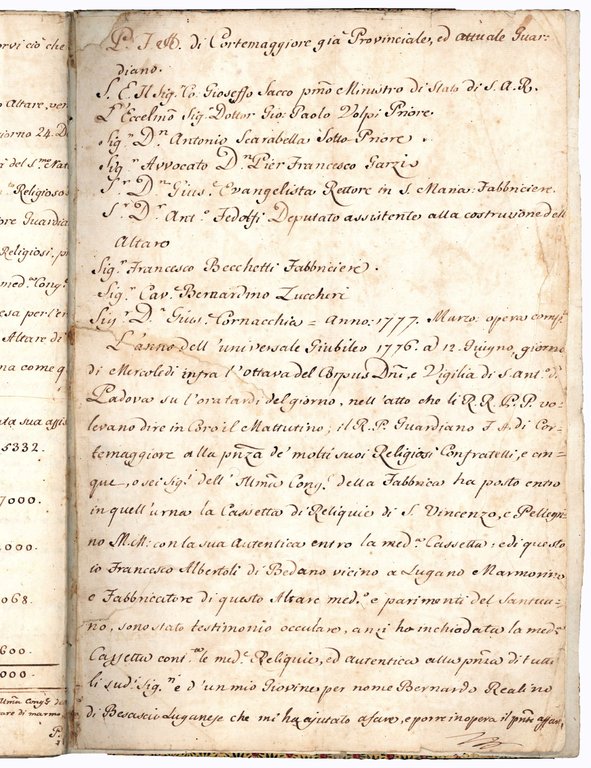 orvi ciò che
o Altare, ven
giorno 24. D
i del S.mo Nat
Religiosos
ore Guardia
Religiosi, p
med.a Cong.
esa per l'er
Altare di
na come q
ta sua assis
5332.
7000.
000.
068.
600.
000.
Ill.ma Cong.e de
are di marmo
P. I. A. di Cortemaggiore già Provinciale, ed attuale Guar-
diano.
S. E. Il Sig.r Co: Gioseffo Sacco pmo e Ministro di Stato di S. A. R.
L'Eccelmo Sig. Dottor Gio: Paolo Volpi Priore.
Sig.r D.n Antonio Scarabella Sotto Priore.
Sig.r Avvocato D.n Pier Francesco Garzis
S.r D.n Gius.e Evangelista Rettore in S. Maria: Fabbriciere.
S.r D.n Ant.o Fedolfi Deputato assistente alla costruzione dell
Altaro
Sig.r Francesco Becchetti Fabbriciere.
Sig.r Cav.e Bernardino Zuccheri
Sig.r D.n Gius.e Cornacchia = Anno: 1777. Marzo: opera comp.a
L'anno dell'universale Giubileo 1776. a d 12. Giugno, giorno
di Mercoledì infra l'ottava del Corpus Dñi, e Vigilia di S. Ant.o di
Padova su l'ora tardi del giorno, nell'atto che li R. R. P. P. vo-
levano dire in Coro il Mattutino; il R. P. Guardiano I. A. di Cor-
temaggiore alla pñza de' molti suoi Religiosi Confratelli, e cin-
que, o sei Sig.i dell'Illma Cong.e della Fabbrica ha posto entro
in quell'urna la Cassetta di Reliquie di S. Vincenzo, e Pellegri-
no M. M: con la sua Autentica entro la med.a Cassetta; e di questo
io Francesco Albertoli di Bedano vicino a Lugano e Marmorino
e Fabbricatore di questo Altare med.o e parimenti del Santua-
rio, sono stato testimonio occulare, anzi ho inchiodata la med.a
Cassetta cont.e le med.e Reliquie, ed autentica alla pñza di tutti
li sud.i Sig.ri e d'un mio Giovine per nome Bernardo Realino
di Besascio Luganese che mi ha ajutato a fare, e porre in opera il pñte